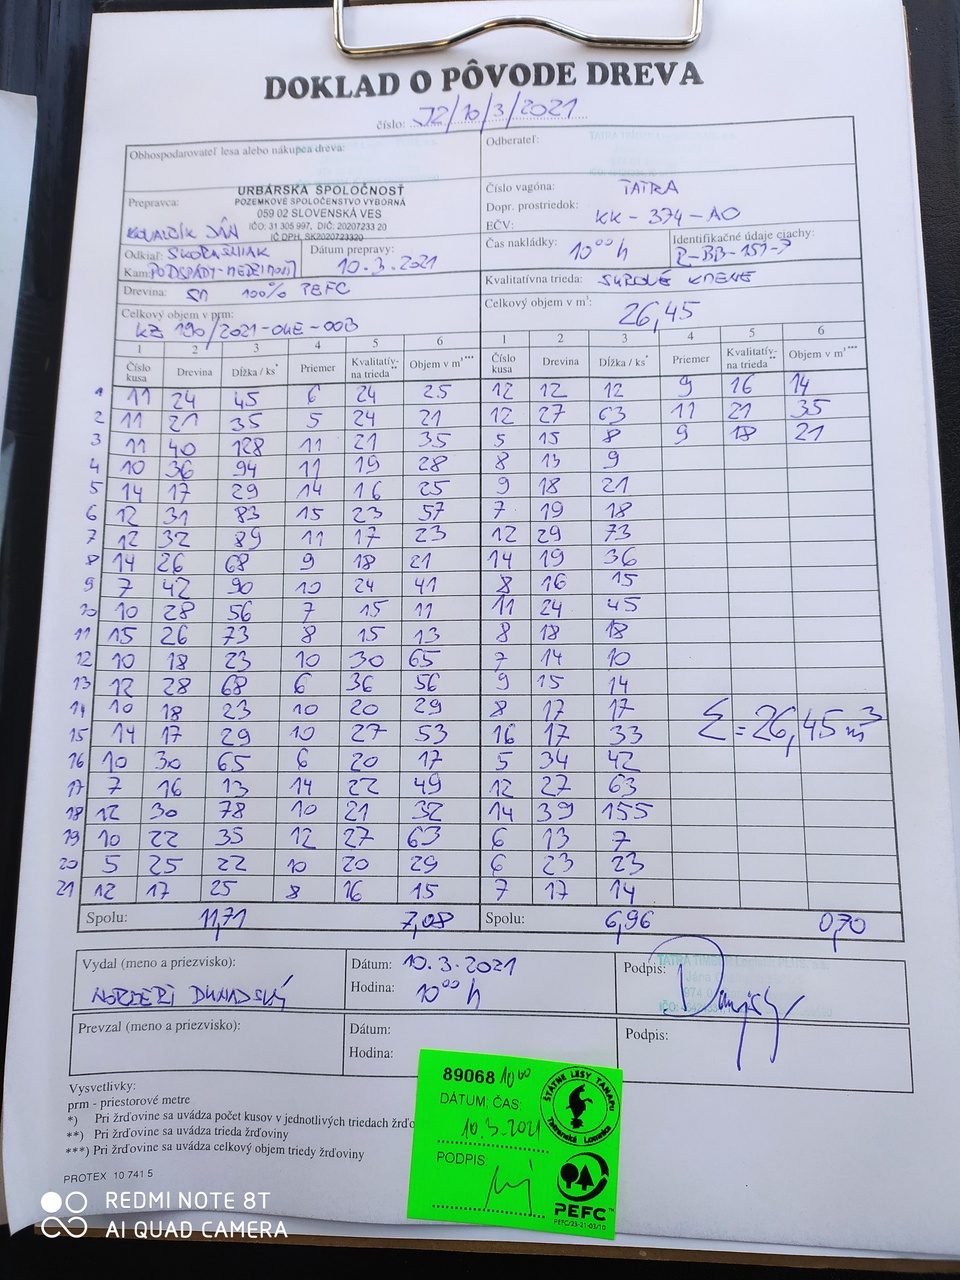 DOKLAD O PÔVODE DREVA
číslo: 12/10/3/2021
Obhospodarovateľ lesa alebo nákupca dreva:
Odberateľ:
URBÁRSKA SPOLOČNOSŤ
POZEMKOVÉ SPOLOČENSTVO VÝBORNÁ
059 02 SLOVENSKÁ VES
IČO: 31 305 997, DIČ: 20207233 20
IČ DPH, SK2020723320
Prepravca:
KOVALČÍK JÁN
Číslo vagóna: TATRA
Dopr. prostriedok:
EČV: KK-374-AO
Odkiaľ: SKORAŠINIAK
Kam: PODSPÁDY-MEDZIMOSTÍ
Dátum prepravy:
10.3.2021
Čas nakládky: 10⁰⁰ h
Identifikačné údaje ciachy:
R-BB-151-7
Drevina: SM 100% PEFC
Kvalitatívna trieda: SUROVÉ KMENE
Celkový objem v prm:
KZ 190/2021-OKE-OOB
Celkový objem v m³: 26,45
1 2 3 4 5 6 1 2 3 4 5 6
Číslo kusa Drevina Dĺžka / ks* Priemer Kvalitatív-na trieda** Objem v m³*** Číslo kusa Drevina Dĺžka / ks* Priemer Kvalitatív-na trieda** Objem v m³***
1 11 24 45 6 24 25 12 12 12 9 16 14
2 11 21 35 5 24 21 12 27 63 11 21 35
3 11 40 128 11 21 35 5 15 8 9 18 21
4 10 36 94 11 19 28 8 13 9
5 14 17 29 14 16 25 9 18 21
6 12 31 83 15 23 57 7 19 18
7 12 32 89 11 17 23 12 29 73
8 14 26 68 9 18 21 14 19 36
9 7 42 90 10 24 41 8 16 15
10 10 28 56 7 15 11 11 24 45
11 15 26 73 8 15 13 8 18 18
12 10 18 23 10 30 65 7 14 10
13 12 28 68 6 36 56 9 15 14
14 10 18 23 10 20 29 8 17 17
15 14 17 29 10 27 53 16 17 33
Σ = 26,45 m³
16 10 30 65 6 20 17 5 34 42
17 7 16 13 14 22 49 12 27 63
18 12 30 78 10 21 32 14 39 155
19 10 22 35 12 27 63 6 13 7
20 5 25 22 10 20 29 6 23 23
21 12 17 25 8 16 15 7 17 14
Spolu: 11,71 7,08 Spolu: 6,96 0,70
Vydal (meno a priezvisko):
NORBERT DUNAJSKÝ
Dátum: 10.3.2021
Hodina: 10⁰⁰ h
Podpis:
Prevzal (meno a priezvisko):
Dátum:
Hodina:
Podpis:
Vysvetlivky:
prm - priestorové metre
*) Pri žrďovine sa uvádza počet kusov v jednotlivých triedach žrďo
**) Pri žrďovine sa uvádza trieda žrďoviny
***) Pri žrďovine sa uvádza celkový objem triedy žrďoviny
PROTEX 10 741 5
89068 10⁰⁰
DÁTUM, ČAS:
10.3.2021
PODPIS:
ŠTÁTNE LESY TANAPU
Tatranská Lomnica
PEFC
PEFC/23-21-03/10
REDMI NOTE 8T
AI QUAD CAMERA